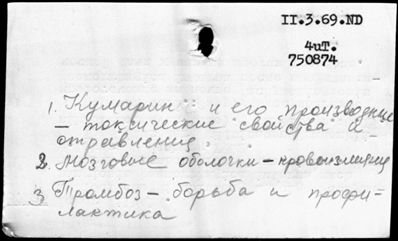 II.3.69.ND
4иТ.
750874
1. Кумарин и его производные
– токсические свойства и
отравления.
2. Мозговые оболочки – кровоизлияния
3. Тромбоз – борьба и профи-
лактика